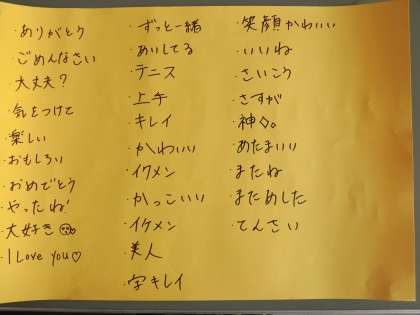 ・ありがとう
・ごめんなさい
・大丈夫?
・気をつけて
・楽しい
・おもしろい
・おめでとう
・やったね
・大好き
・I Love you♡
・ずっと一緒
・あいしてる
・テニス
・上午
・キレイ
・かわいい
・イクメン
・かっこいい
・イケメン
・美人
・字キレイ
・笑顔かわいい
・いいね
・さいこう
・さすが
・神◇。
・あたまいい
・またね
・まためした
・てんさい